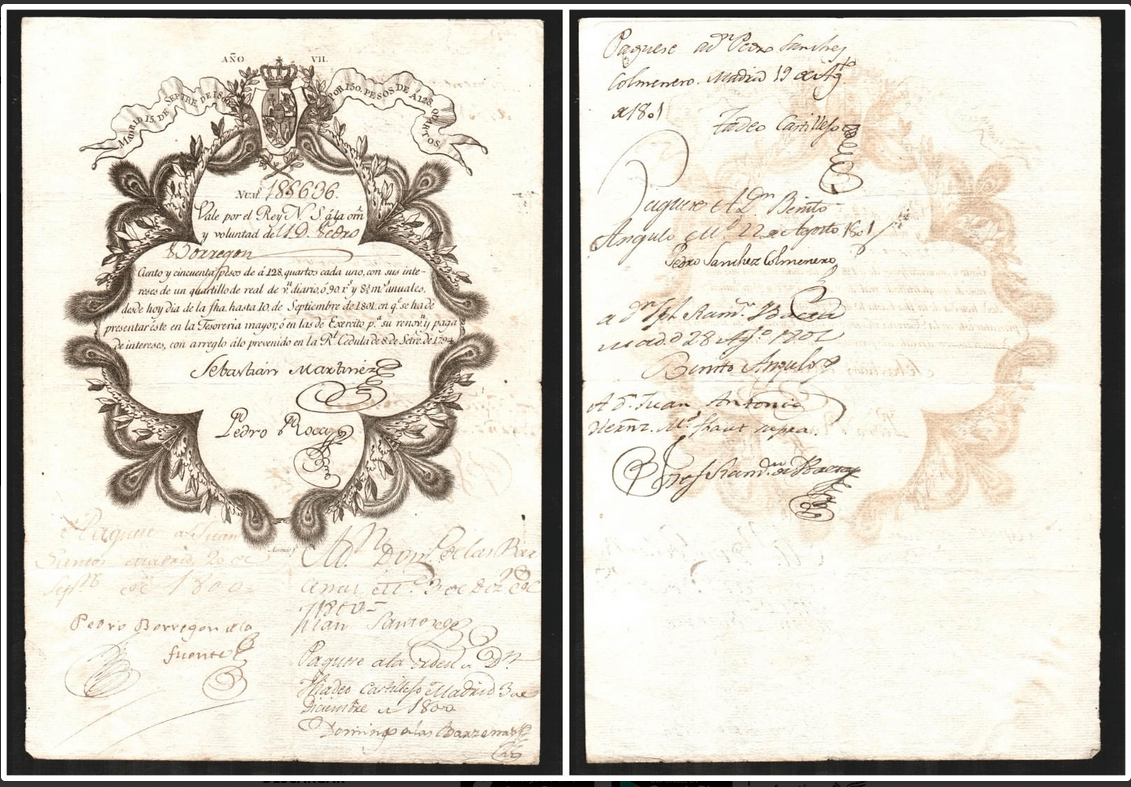 AÑO VII.
MADRID 15. DE SEPTRE DE 18
POR 150. PESOS DE A 128. QUARTOS.
Num. 186636.
Vale por el Rey N. S. á la orn
y voluntad de D. Pedro
Borregon
Ciento y cincuenta pesos de á 128 quartos cada uno, con sus inte-
reses de un quartillo de real de vn. diario, ó 90 rs. y 8½ ms. anuales,
desde hoy dia de la fha. hasta 10. de Septiembre de 1801. en q.e se ha de
presentar éste en la Tesorería mayor, ó en las de Exercito p.a su renovn. y paga
de intereses, con arreglo álo prevenido en la Rl. Cedula de 8. de Setre. de 1794.
Sebastián Martínez
Pedro Roca
Paguese a Juan
Santos 20 de
Septe de 1800
Pedro Borregon de la
fuente
Dom.o de las Bar
cenas 3 de Diz.e de
1800
Juan Santos
Paguese a la orden de Dn
Thadeo Castillejo Madrid 3 de
Diciembre de 1800
Domingo de las Barzenas
Paguese a dn Pedro Sanchez
Colmenero. Madrid 19 de Agto
de 1801
Tadeo Castillejo
Paguese a Dn Benito
Angulo Md. 22 de Agosto 1801
Pedro Sanchez Colmenero
a Dn Jph. Ramn. Baeza
Madd. 28 Ago. 1801
Benito Angulo
A Dn. Juan Antonio
Hernz. Md. fhaut supra.
Josef Ramon de Baeza